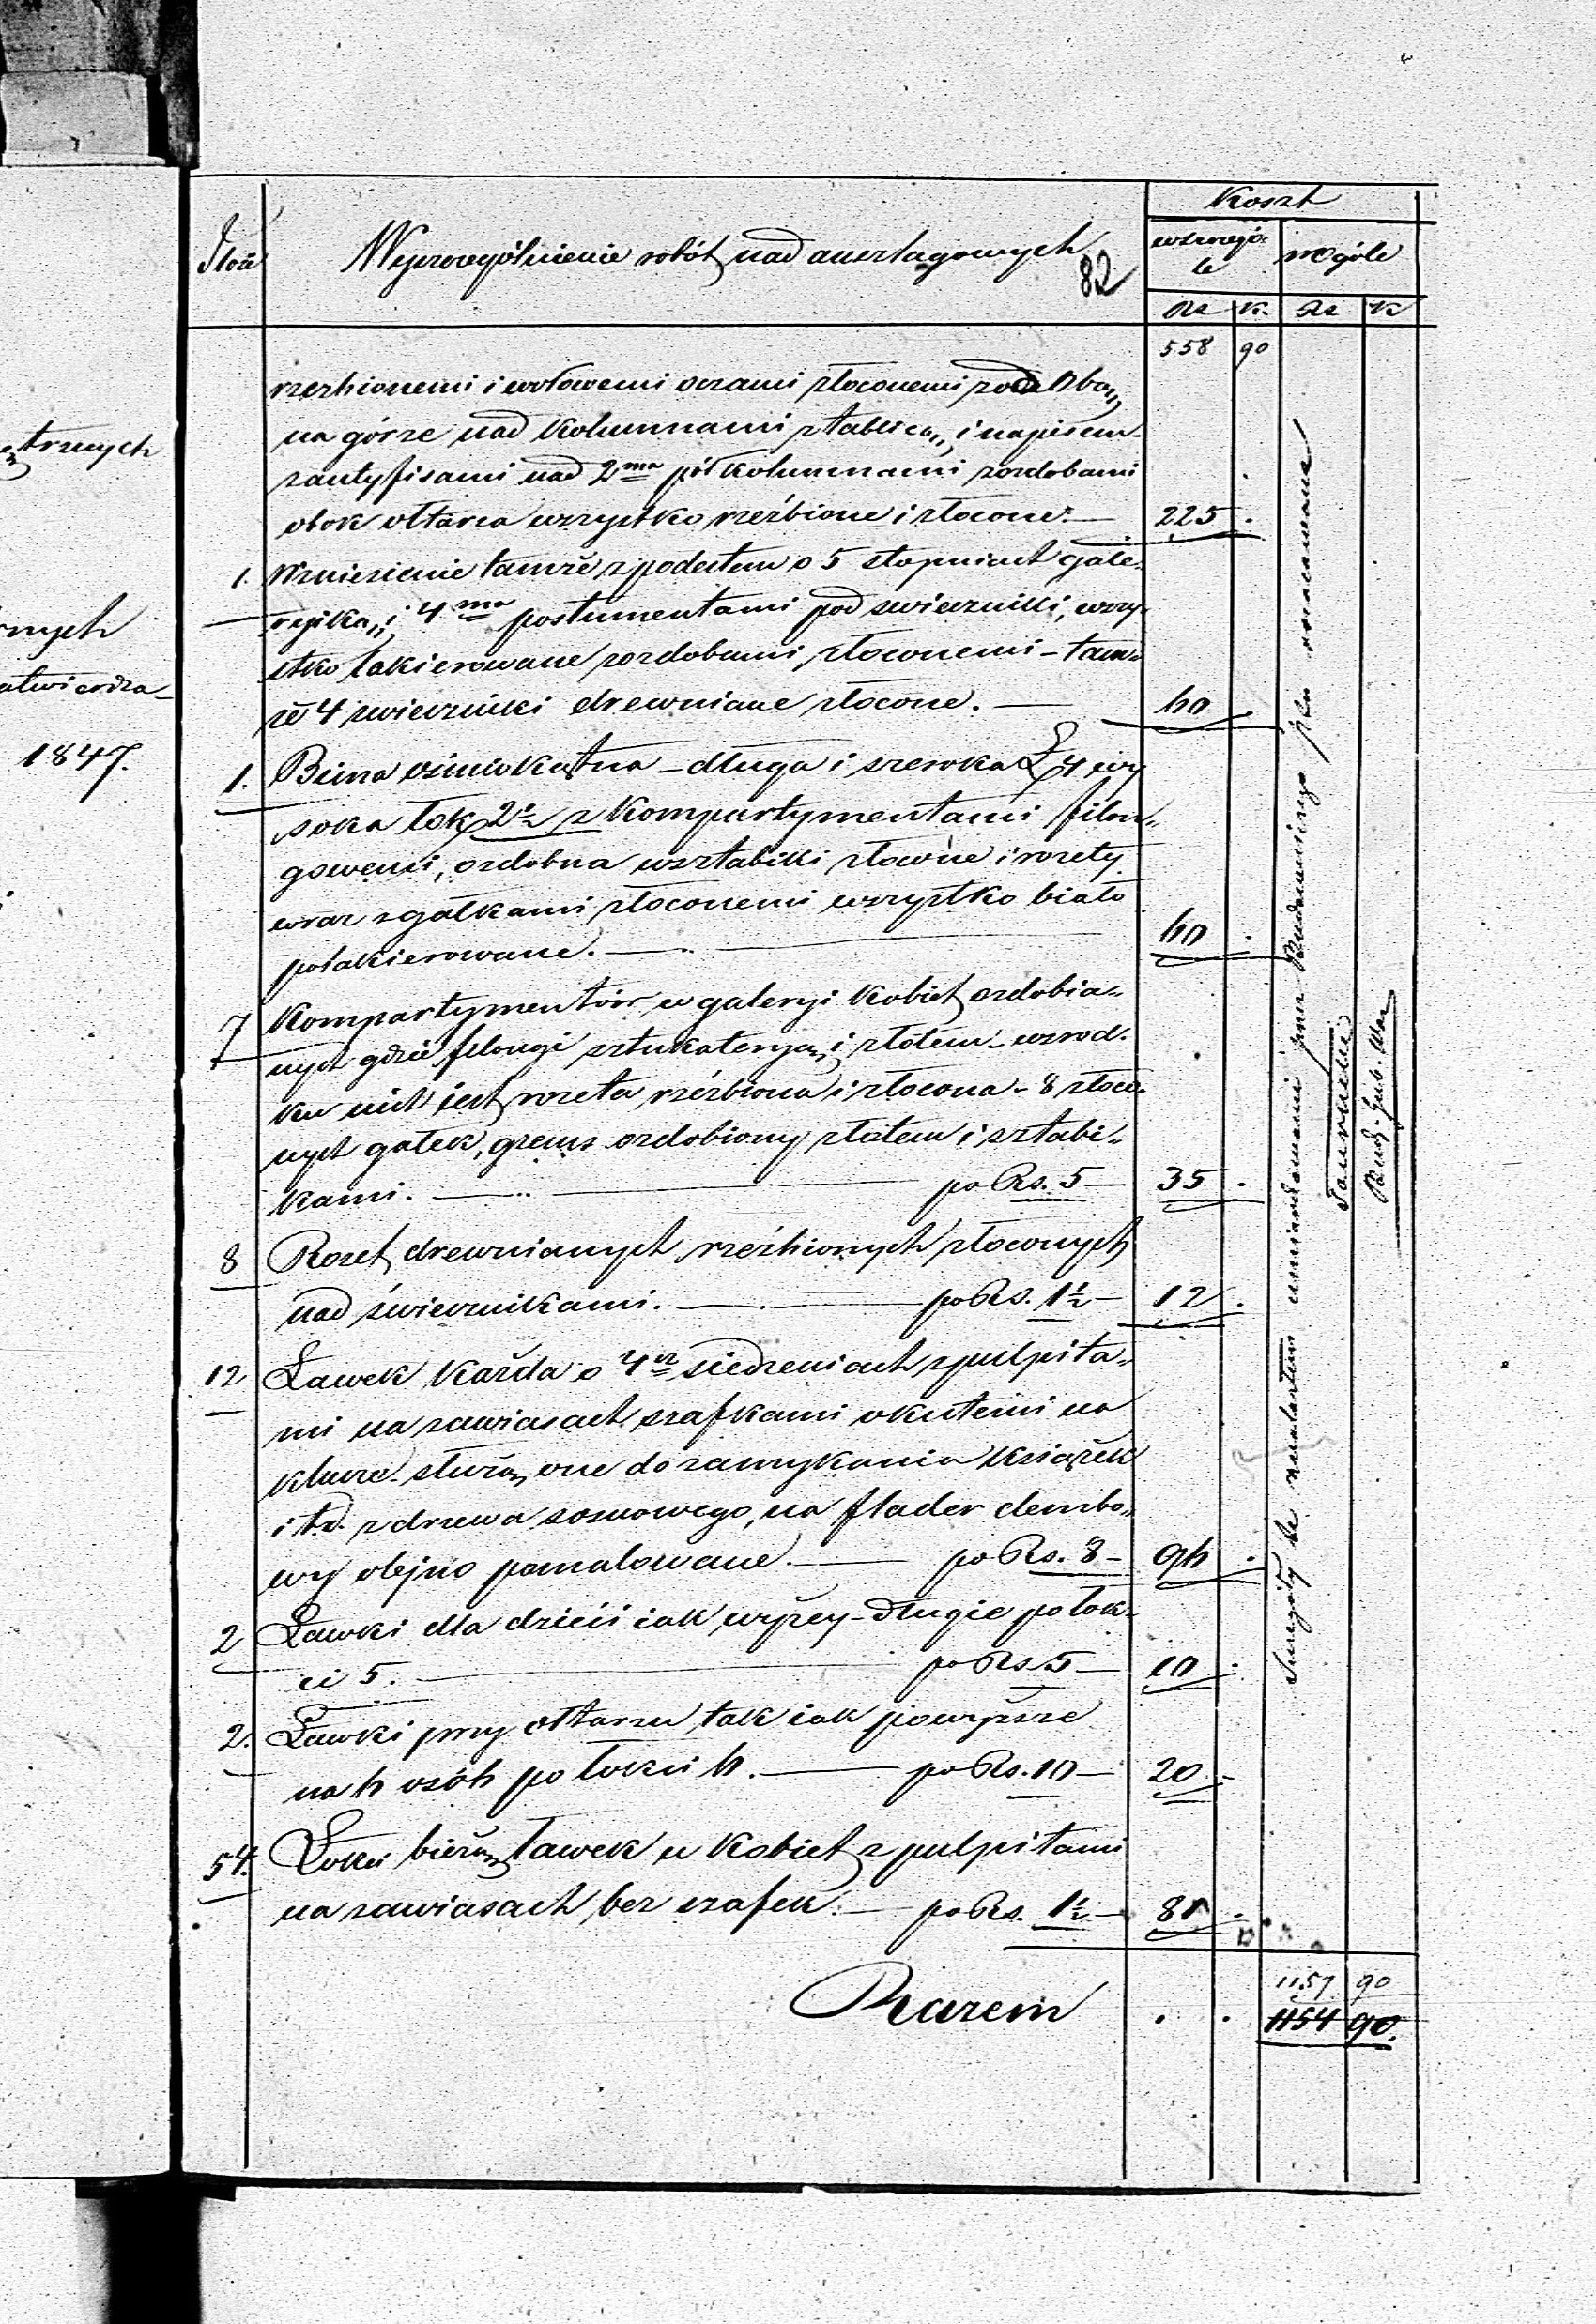 trznych
nych
atwierdza-
1847.
Ilość
Wyszczególnienie robót nad anszlagowych
82
Koszt
wszczegó-
le
wogóle
Rs K. Rs K
558 90
rzezbionemi i wołowemi oczami złoconemi zozdobą,,
na górze nad kolumnami z tablicą,, i napisem-
zantyfisami nad 2ma pół kolumnami zozdobami
obok ołtarza wszystko rzeźbione i złocone.— 225 .
1. Wzniesienie tamże z podestem o 5 stopniach gale-
ryjką,, i 4ma postumentami pod swieczniki, wszy-
stko lakierowane zozdobami złoconemi - tam-
że 4 swieczniki drewniane złocone. — 60 .
1. Bima ośmiokątna - długa i szeroka Ł 4 wy
soka łok 2½ z kompartymentami filon,,
gowemi, ozdobna wsztabiki złocone i rozety
wraz z gałkami złoconemi wszystko biało
polakierowane. — 60 .
7 Kompartymentów w galeryi kobiet ozdobia-
nych gdzie filongi sztukateryą i złotem - wsrod-
ku nich jest rozeta rzeźbiona i złocona - 8 złoco-
nych gałek, gzems ozdobiony złotem i sztabi-
kami. — po Rs. 5 — 35 .
8 Rozet drewnianych rzeźbionych złoconych
nad świecznikami. — po Rs. 1½ — 12 .
12 Ławek każda o 4ch siedzeniach z pulpita-
mi na zawiasach szafkami okutemi na
klucze służą, one do zamykania książek
i t.d. z drzewa sosnowego, na flader dembo-
wy olejno pomalowane. — po Rs. 8 — 96 .
2 Ławki dla dzieci iak wyżey - długie po łok-
ci 5. — po Rs 5 — 10 .
2. Ławki przy ołtarzu tak iak powyższe
na 6 osób po łokci 6. — po Rs. 10 — 20 -
54. Łokci bieżą, ławek u kobiet z pulpitami
na zawiasach bez szafek. — po Rs. 1½ — 81 -
Razem . . 1157 90
1154 90.
Szczegóły te
przez Budowniczego
Bud. Gub. War